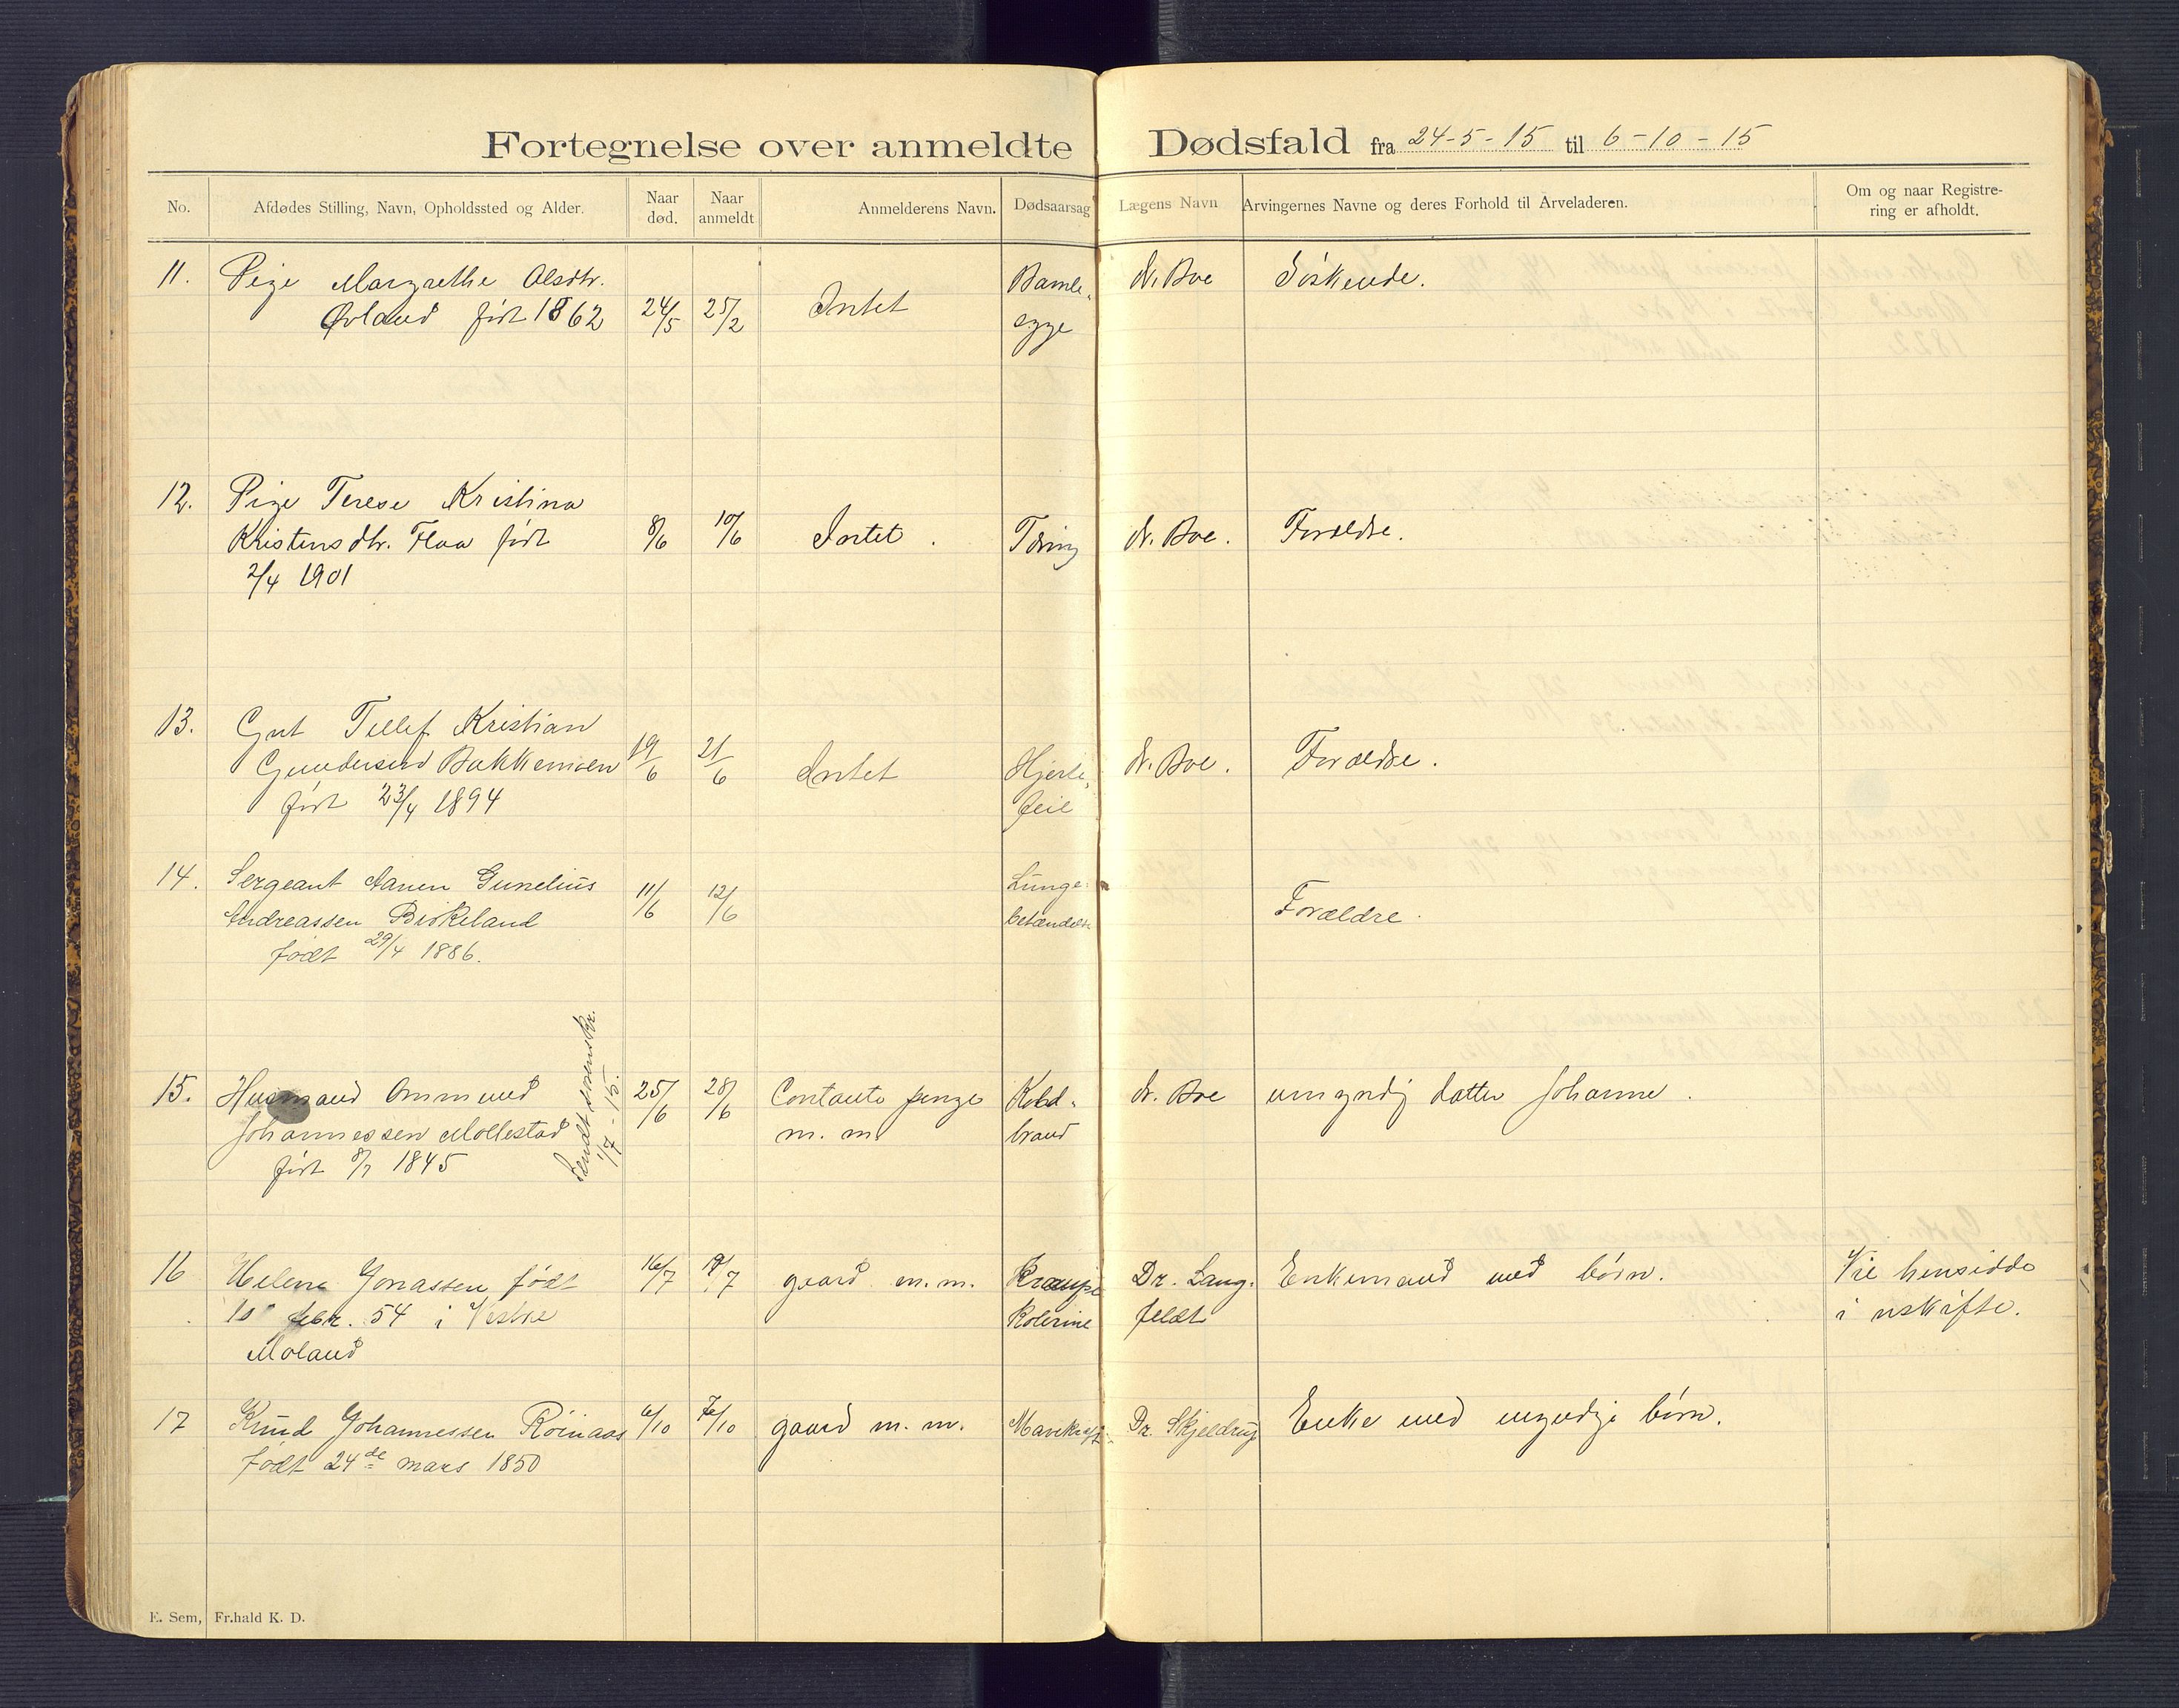 Fortegnelse over anmeldte Dødsfald fra 24-5-15 til 6-10-15
No. Afdødes Stilling, Navn, Opholdssted og Alder. Naar død. Naar anmeldt Anmelderens Navn. Dødsaarsag Lægens Navn Arvingernes Navne og deres Forhold til Arveladeren. Om og naar Registrering er afholdt.
11. Pige Margrethe Olsdtr. Bamle- dr. Boe Søskende.
Øvland født 1862 24/5 25/2 Intet egge
12. Pige Terese Kristina
Kristensdtr. Flaa født 8/6 10/6 Intet. Tæring dr. Boe. Forældre.
2/4 1901
13. Gut Tellef Kristian
Gundersen Bakkemoen 19/6 21/6 Intet Hjerte- dr. Boe. Forældre.
født 23/4 1894 feil
14. Sergeant Aanen Gunelius 11/6 12/6 Lunge-
Andreassen Birkeland betændelse Forældre.
født 29/4 1886.
15. Husmand Ommund 25/6 28/6 Contante penge Kold- dr. Boe umyndig datter Johanne.
Johannessen Mollestad m. m. brand
født 8/7 1845
Sendt sorenskr.
1/7-15.
16 Helene Jonassen, født 16/7 19/7 gaard m.m. Krampe Dr. Lang- Enkemand med børn. Vil hensidde
10 febr. 54 i Vestre Kolerine feldt i uskifte.
Moland
17 Knud Johannessen Röinaas 6/10 7/10 gaard m. m. Mavekræft Dr. Skjeldrup Enke med myndige börn.
født 24de mars 1850
E. Sem, Fr.hald K. D.